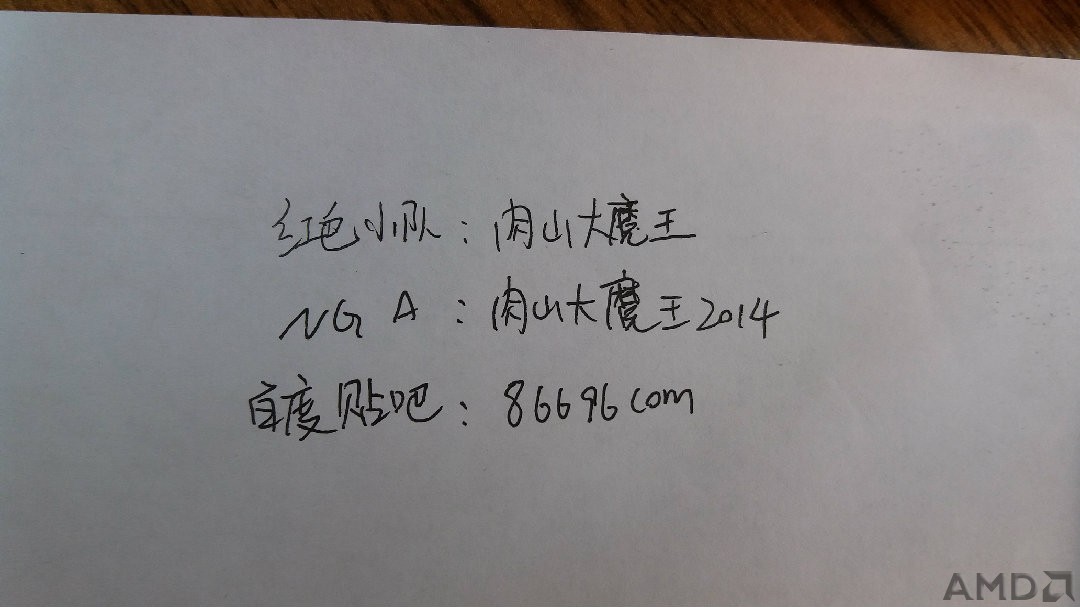 红色小队：肉山大魔王
NGA：肉山大魔王2014
百度贴吧：86696com
AMD